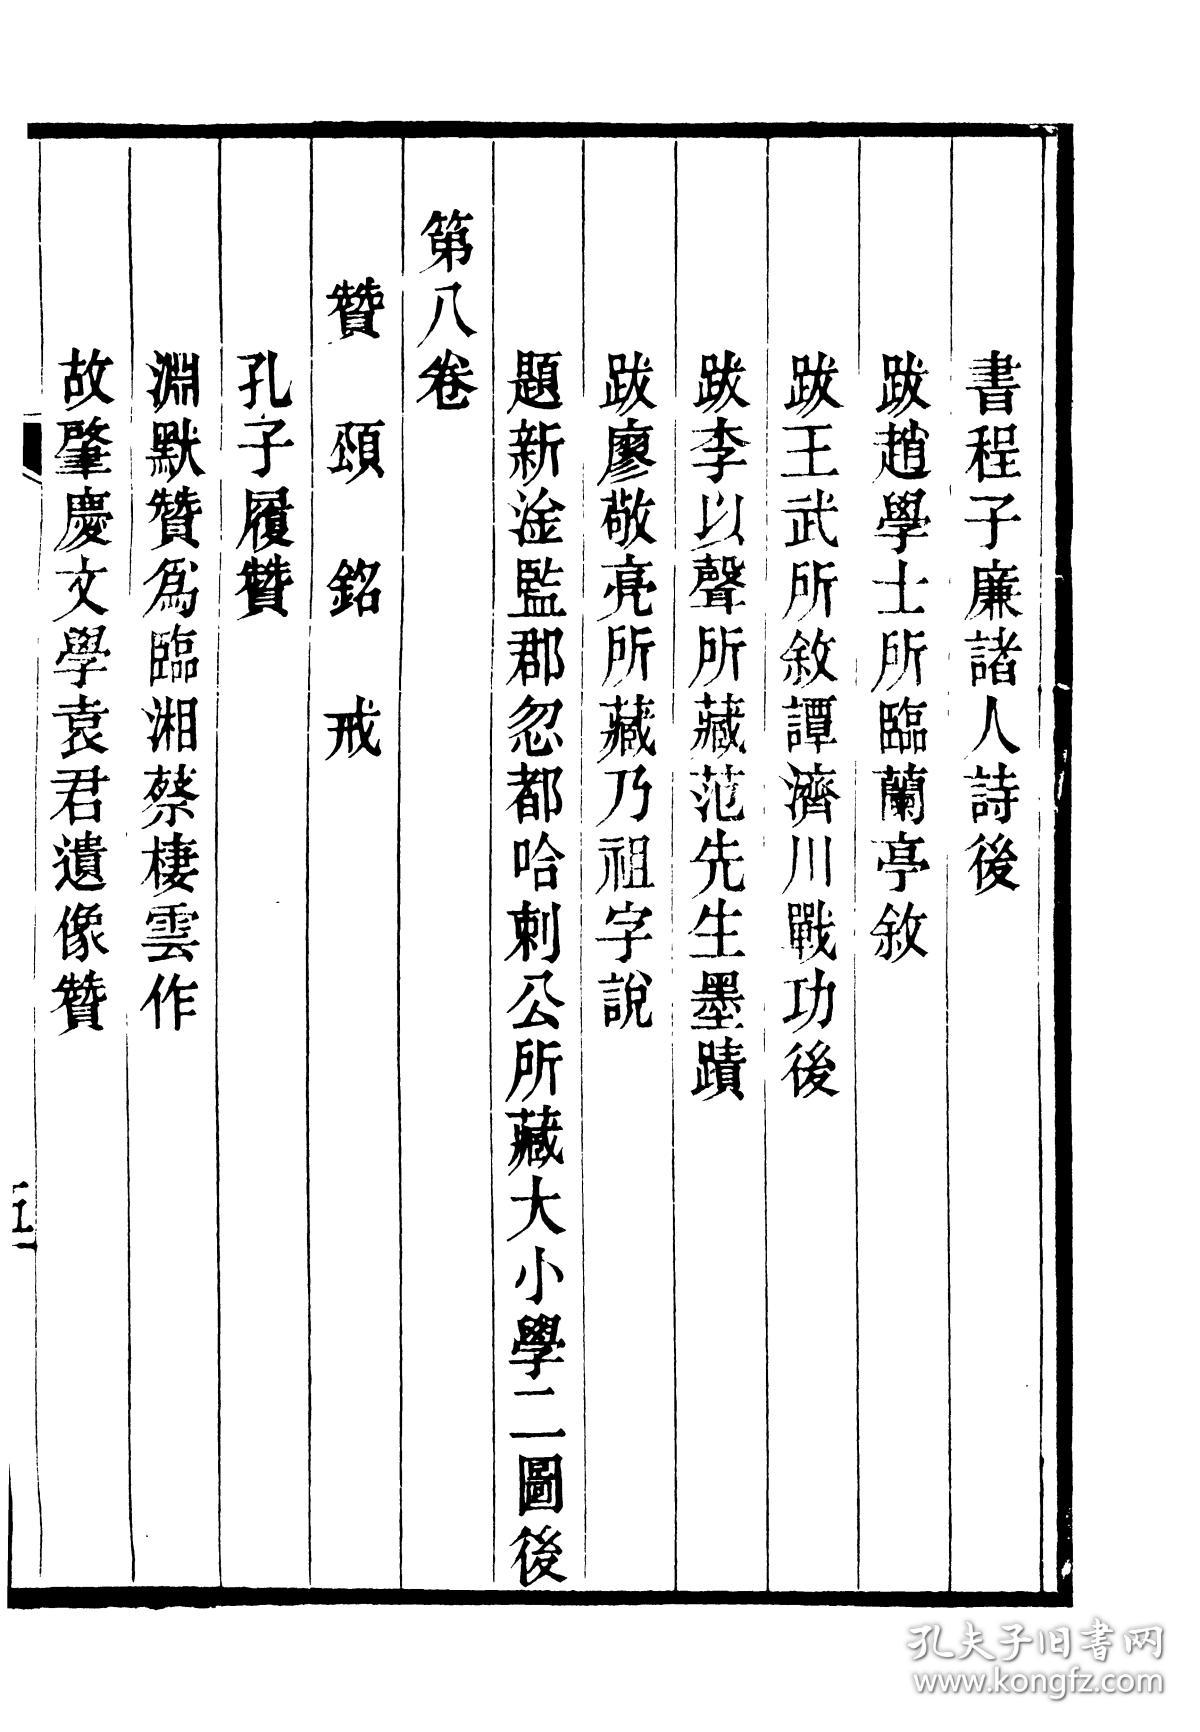 書程子廉諸人詩後
跋趙學士所臨蘭亭敘
跋王武所敘譚濟川戰功後
跋李以聲所藏范先生墨蹟
跋廖敬亮所藏乃祖字說
題新淦監郡忽都哈剌公所藏大小學二圖後
第八卷
贊頌銘戒
孔子履贊
淵默贊爲臨湘蔡棲雲作
故肇慶文學袁君遺像贊
五
孔夫子旧書网
www.kongfz.com